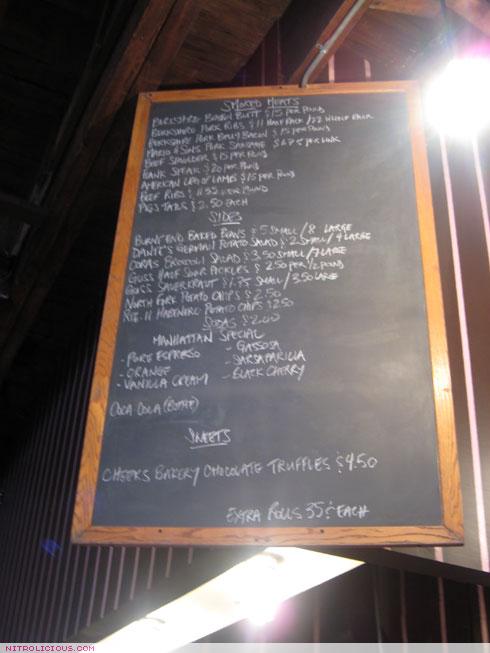 SMOKED MEATS
BERKSHIRE BOSTON BUTT $15 PER POUND
BERKSHIRE PORK RIBS $11 HALF RACK / 22 WHOLE RACK
BERKSHIRE PORK BELLY BACON $15 PER POUND
MARIO & SONS PORK SAUSAGE $6.75 PER LINK
BEEF SHOULDER $15 PER POUND
FLANK STEAK $20 PER POUND
AMERICAN LEG OF LAMB $15 PER POUND
BEEF RIBS $ PER POUND
PIGS TAILS $2.50 EACH
SIDES
BURNT END BAKED BEANS $5 SMALL / 8 LARGE
DANTE'S GERMAN POTATO SALAD $2 SMALL / 4 LARGE
CORA'S BROCCOLI SALAD $3.50 SMALL / 7 LARGE
GUSS HALF SOUR PICKLES $2.50 PER 1/2 POUND
GUSS SAUERKRAUT $1.75 SMALL / 3.50 LARGE
NORTH FORK POTATO CHIPS $2.50
RTE. 11 HABENERO POTATO CHIPS $2.50
SODAS $2.00
MANHATTAN SPECIAL
- PURE ESPRESSO
- ORANGE
- VANILLA CREAM
- GASSOSA
- SARSAPARILLA
- BLACK CHERRY
COCA COLA (BOTTLE)
SWEETS
CHEEKS BAKERY CHOCOLATE TRUFFLES $4.50
EXTRA ROLLS 35¢ EACH
NITROLICIOUS.COM